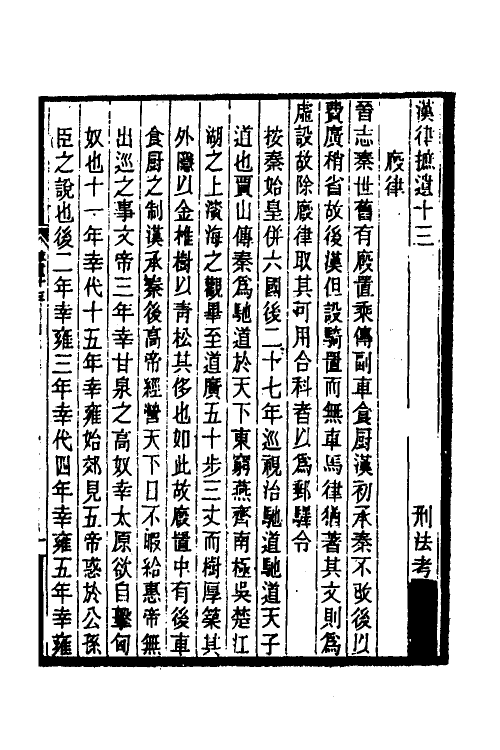 漢律摭遺十三　刑法考
廄律
晉志秦世舊有廄置乘傳副車食厨漢初承秦不改後以
費廣稍省故後漢但設騎置而無車馬律猶著其文則爲
虛設故除廄律取其可用合科者以爲郵驛令
按秦始皇併六國後二十七年巡視治馳道馳道天子
道也賈山傳秦爲馳道於天下東窮燕齊南極吳楚江
湖之上濱海之觀畢至道廣五十步三丈而樹厚築其
外隱以金椎樹以青松其侈也如此故廄置中有後車
食厨之制漢承秦後高帝經營天下日不暇給惠帝無
出巡之事文帝三年幸甘泉之高奴幸太原欲自擊匈
奴也十一年幸代十五年幸雍始郊見五帝惑於公孫
臣之說也後二年幸雍三年幸代四年幸雍五年幸雍